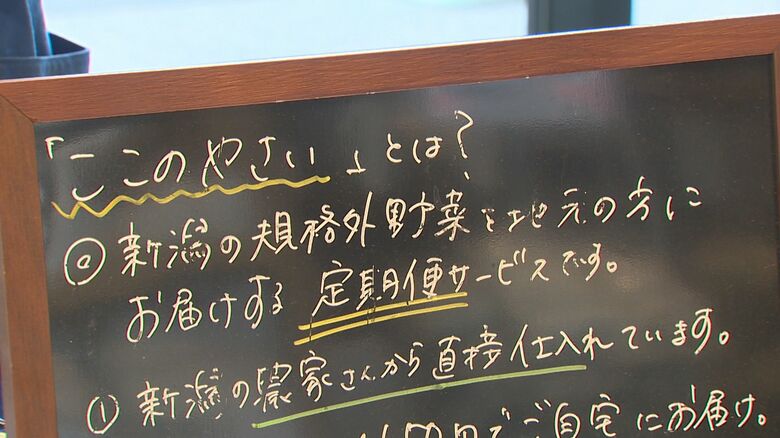 「ここのやさい」とは?
⓪新潟の規格外野菜を地元の方に
お届けする定期便サービスです。
①新潟の農家さんから直接仕入れています。
円でご自宅にお届け。